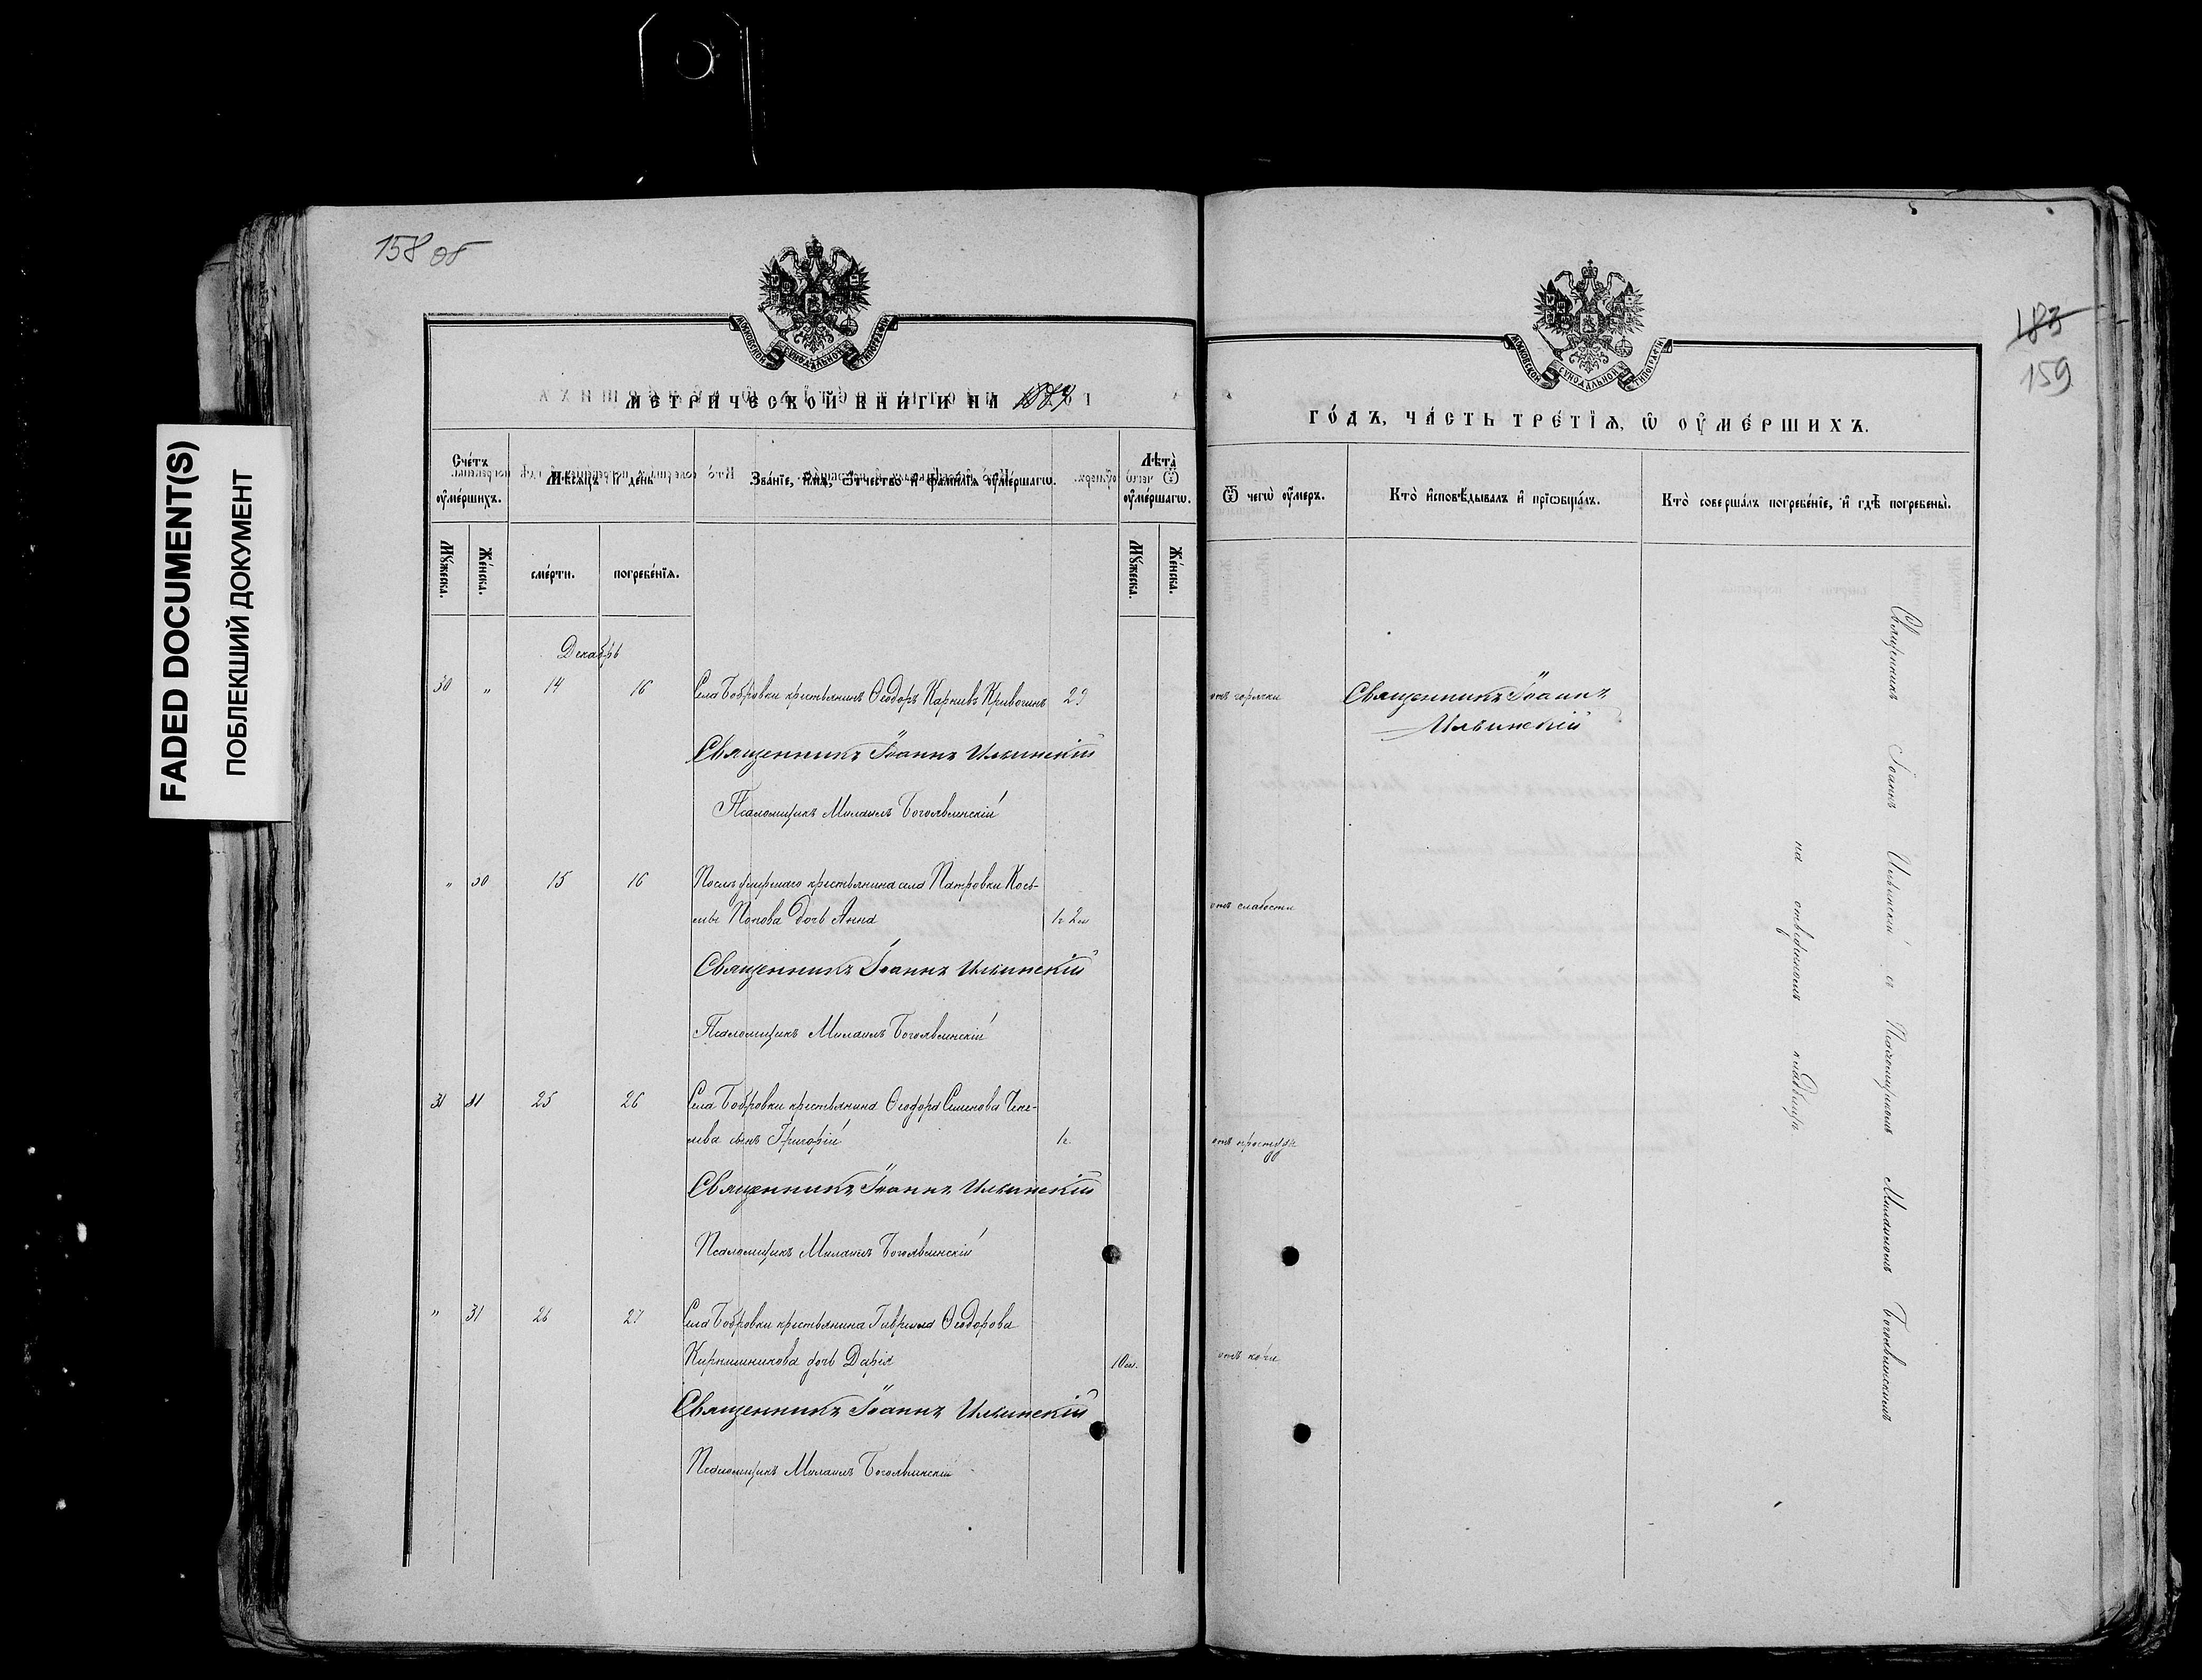 FADED DOCUMENT(S)
ПОБЛЕКШИЙ ДОКУМЕНТ
158 об
МОСКОВСКОЙ СѴНОДАЛЬНОЙ ТИПОГРАФІИ
МЕТРИЧЕСКОЙ КНИГИ НА
Счетъ оумершихъ.
Мѣсяцъ и день
Званїе, имя, отчество и фамилїя оумершагѡ.
Лѣта оумершагѡ.
Мужеска.
Женска.
смерти.
погребенїя.
Мужеска.
Женска.
Декабрь
30 " 14 16 Села Бобровки крестьянинъ Ѳеодоръ Карпивъ Кривогинъ 29
Священникъ Іоаннъ Ильинскій
Псаломщикъ Михаилъ Богоявленскій
" 30 15 16 Послѣ умершаго крестьянина села Патровки Кось-
мы Попова дочь Анна 1г 2м
Священникъ Іоаннъ Ильинскій
Псаломщикъ Михаилъ Богоявленскій
31 25 26 Села Бобровки крестьянина Ѳеодора Семенова
сынъ Григорій 1г.
Священникъ Іоаннъ Ильинскій
Псаломщикъ Михаилъ Богоявленскій
" 31 26 27 Села Бобровки крестьянина Гавриила Ѳеодорова
Кирпишникова дочь Дарія 10м.
Священникъ Іоаннъ Ильинскій
Псаломщикъ Михаилъ Богоявленскій
183
159
МОСКОВСКОЙ СѴНОДАЛЬНОЙ ТИПОГРАФІИ
ГОДЪ, ЧАСТЬ ТРЕТІЯ, Ѡ ОУМЕРШИХЪ.
Ѿ чегѡ оумеръ.
Кто исповѣдывалъ и прїѡбщалъ.
Кто совершалъ погребенїе, и гдѣ погребены.
отъ горячки
Священникъ Іоаннъ
Ильинскій
отъ слабости
отъ простуды
отъ кори
Священникъ Іоаннъ Ильинскій съ Псаломщикомъ Михаиломъ Богоявленскимъ
на отведенномъ кладбищѣ